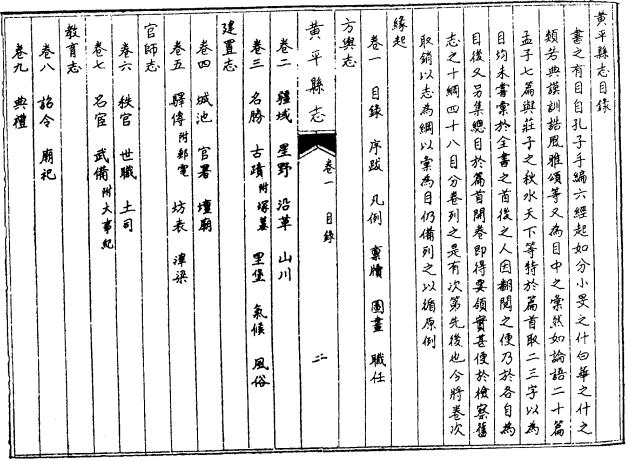 黄平縣志目錄
書之有目自孔子手編六經起如分小旻之什白華之什之
類若典謨訓誥風雅頌等又為目中之彙然如論語二十篇
孟子七篇與莊子之秋水天下等特於篇首取二三字以為
目均未書彙於全書之首後之人因翻閱之便乃於各自為
目後又另集總目於篇首開卷即得要領實甚便於檢察舊
志之十綱四十八目分卷列之是有次第先後也今將卷次
取銷以志為綱以彙為目仍備列之以循原例
緣起
卷一 目錄 序跋 凡例 稟牘 圖畫 職任
方輿志
黄平縣志 卷一 目錄 二
卷二 疆域 星野 沿革 山川
卷三 名勝 古蹟附塚墓 里堡 氣候 風俗
建置志
卷四 城池 官署 壇廟
卷五 驛傳附郵電 坊表 津梁
官師志
卷六 秩官 世職 土司
卷七 名宦 武備附大事紀
教育志
卷八 詔令 廟祀
卷九 典禮